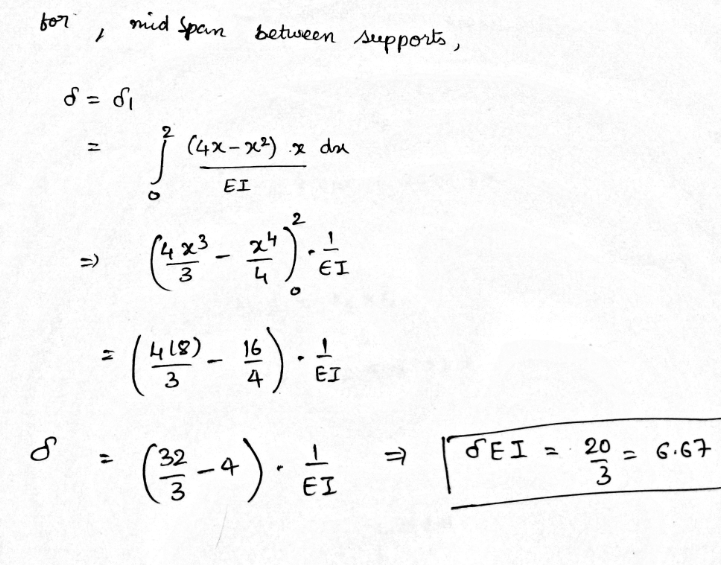 for , mid span between supports,
δ = δ1
= ∫₀² (4x-x²) x dx / EI
=> (4x³/3 - x⁴/4)₀² · 1/EI
= (4(8)/3 - 16/4) · 1/EI
δ = (32/3 - 4) · 1/EI => δEI = 20/3 = 6.67